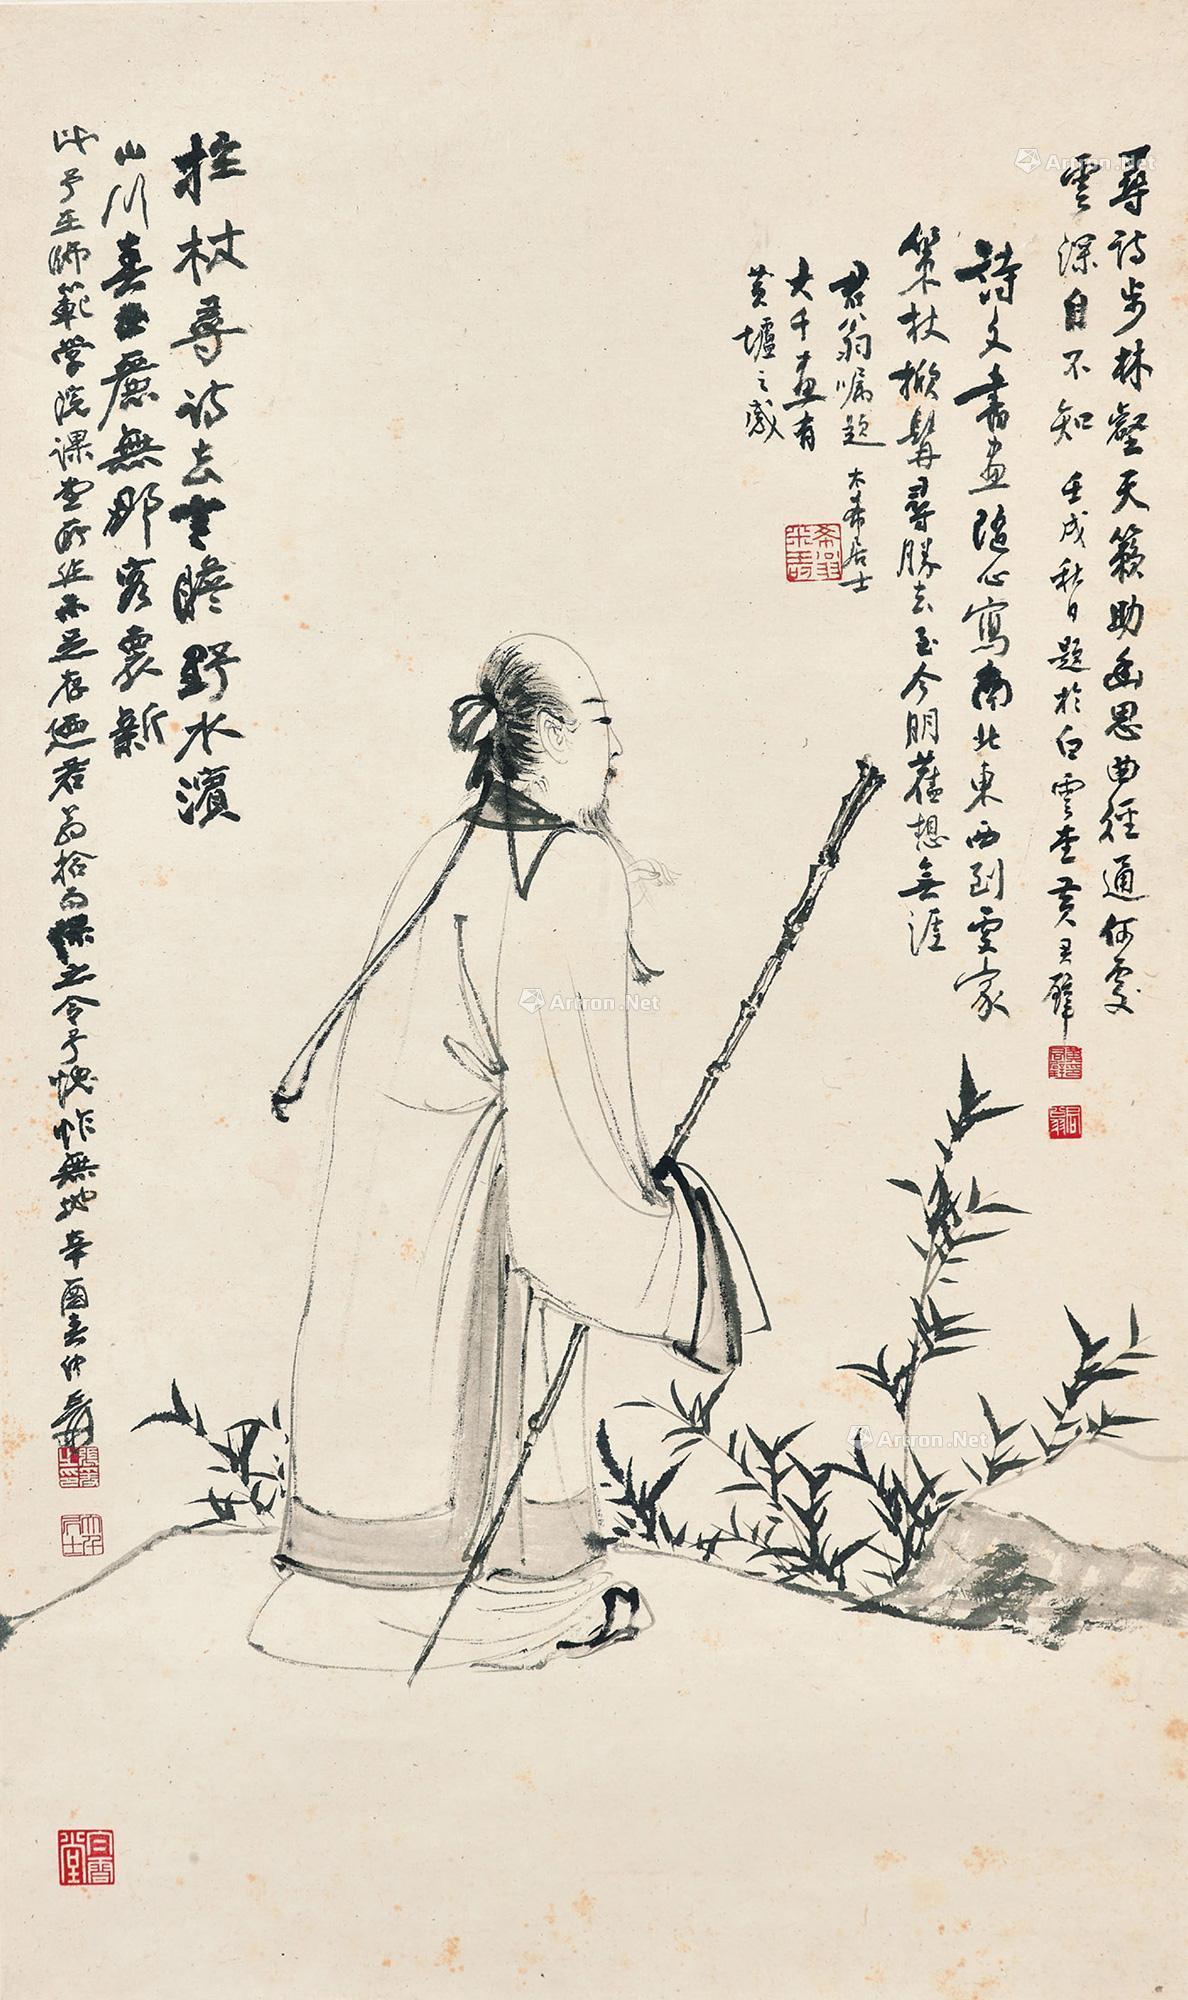 尋詩步林壑天籟助幽思曲徑通何處
雲深自不知壬戌秋日題於白雲堂黃君璧
詩文書畫隨心寫南北東西到處家
策杖掀髯尋勝去至今明舊想無涯
君翁囑題
大千畫有
黃壚之感
太希居士
拄杖尋詩去來瞻野水濱
山川春正麗無那客裏新
此予在師範學院課堂所作不足存迺君翁拾而
之令予愧怍無地辛酉春仲爰
白雲堂
Artron.Net
Artron.Net
Artron.Net